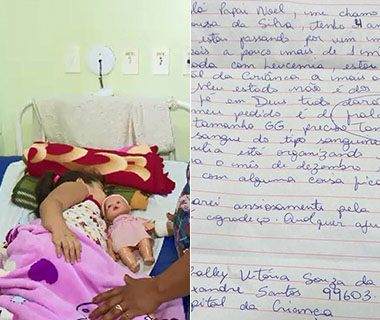 lá Papai Noel, me chamo
ousa da Silva, tenho 4 an
está passando por um
pois a pouco mais de 1
ada com leucemia estou
al da Criança a mais
Meu estado não é dos
fé em Deus tudo dará
meu pedido é d fral
tamanho GG, preciso tam
sangue do tipo sanguine
ília está organizando
a o mês de dezembro
com alguma coisa fica
arei ansiosamente pela
agradeço. Qualquer aju
Vitória Souza da
exandre Santos 99603
pital da Criança